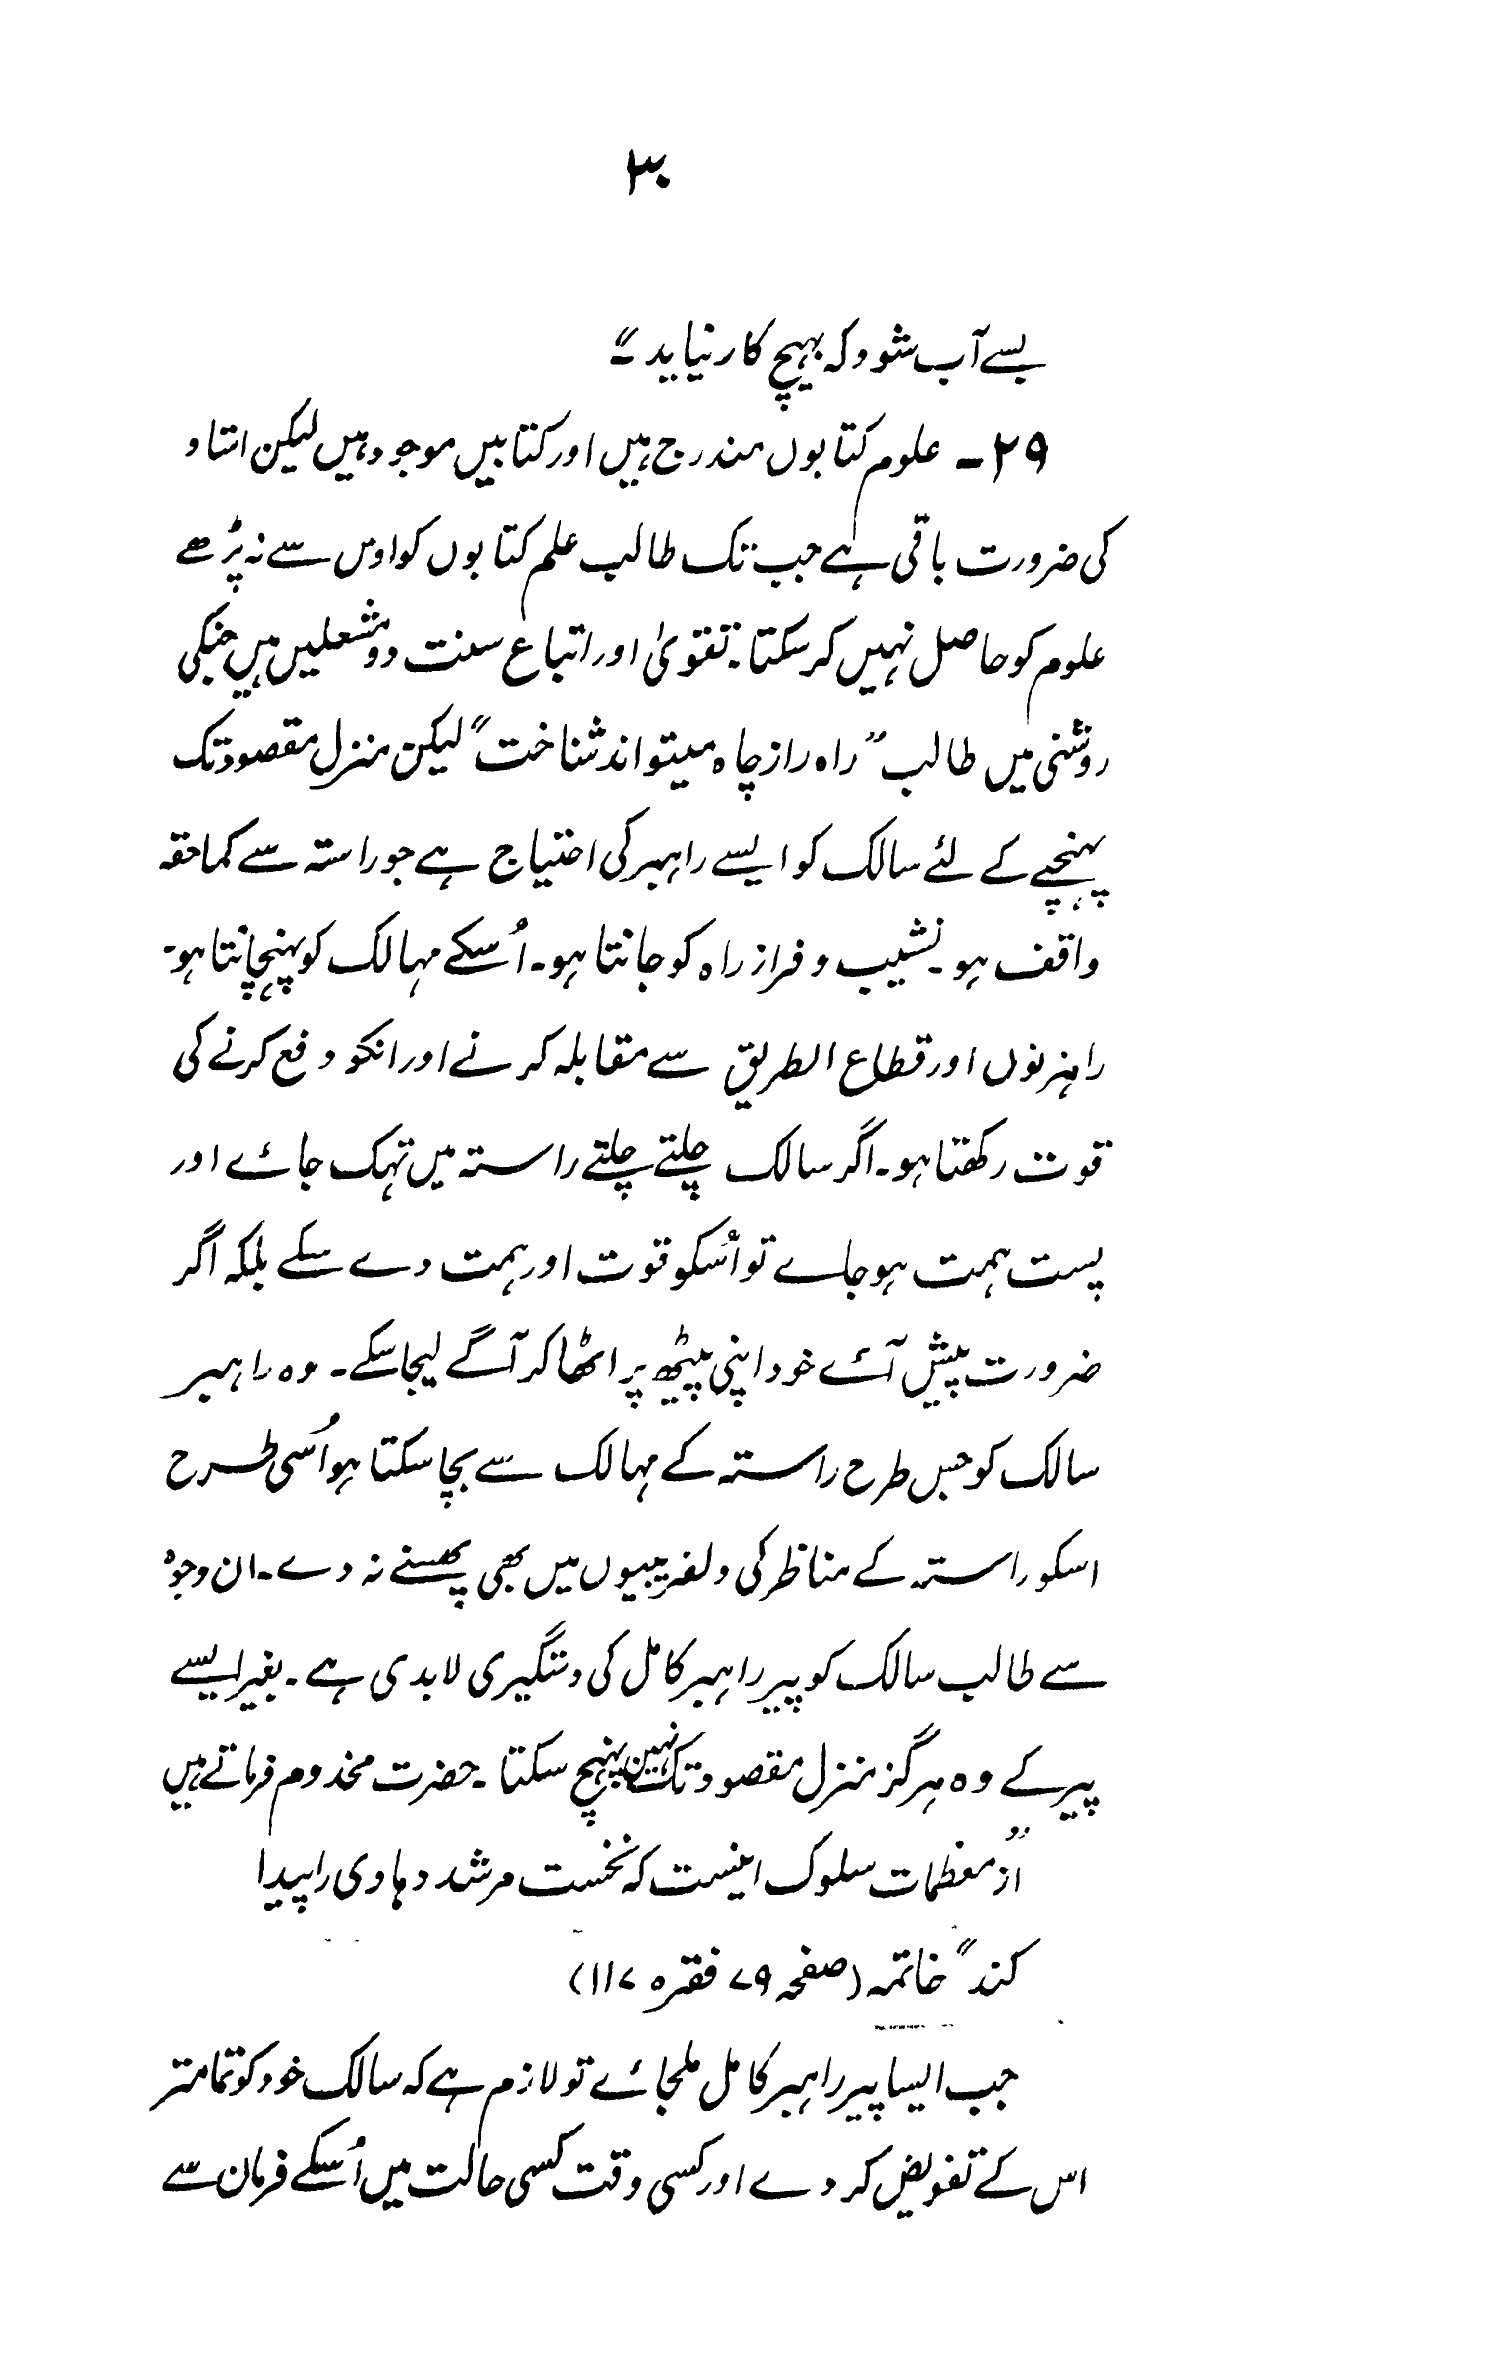 ۳۰
بسے آب شود کہ بہیچ کار نیاید ۔"
۲۹ ۔ علوم کتابوں مندرج ہیں اور کتابیں موجود ہیں لیکن استاد
کی ضرورت باقی ہے جب تک طالب علم کتابوں کو اوس سے نہ پڑھے
علوم کو حاصل نہیں کر سکتا ۔ تقویٰ اور اتباع سنت دو مشعلیں ہیں جنکی
روشنی میں طالب "راہ را از چاہ میتواند شناخت" لیکن منزل مقصود تک
پہنچے کے لئے سالک کو ایسے راہبر کی احتیاج ہے جو راستہ سے کماحقہ
واقف ہو ۔ نشیب و فراز راہ کو جانتا ہو ۔ اُسکے مہالک کو پہنچانتا ہو ۔
راہزنوں اور قطاع الطریق سے مقابلہ کرنے اور انکو دفع کرنے کی
قوت رکھتا ہو ۔ اگر سالک چلتے چلتے راستہ میں تہک جائے اور
پست ہمت ہو جاے تو اُسکو قوت اور ہمت دے سکے بلکہ اگر
ضرورت پیش آئے خود اپنی پیٹھ پر اٹھا کر آگے لیجا سکے ۔ وہ راہبر
سالک کو جس طرح راستہ کے مہالک سے بچا سکتا ہو اُسی طرح
اسکو راستہ کے مناظر کی دلفریبیوں میں بھی پھسنے نہ دے ۔ ان وجوہ
سے طالب سالک کو پیر راہبر کامل کی دستگیری لابدی ہے ۔ بغیر ایسے
پیر کے وہ ہرگز منزل مقصود تک نہیں پہنچ سکتا ۔ حضرت مخدوم فرماتے ہیں
"از معظمات سلوک اینست کہ نخست مرشد و ہادی را پیدا
کند" خاتمہ (صفحہ ۷۹ فقرہ ۱۱۷)
جب ایسا پیر راہبر کامل ملجائے تو لازم ہے کہ سالک خود کو تمامتر
اس کے تفویض کر دے اور کسی وقت کسی حالت میں اُسکے فرمان سے